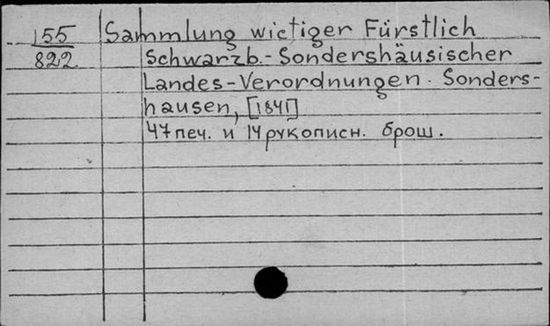 155 Sammlung wictiger Fürstlich
822 Schwarzb.-Sondershäusischer
Landes-Verordnungen. Sonders-
hausen, [1841]
47 печ. и 14 рукописн. брош.